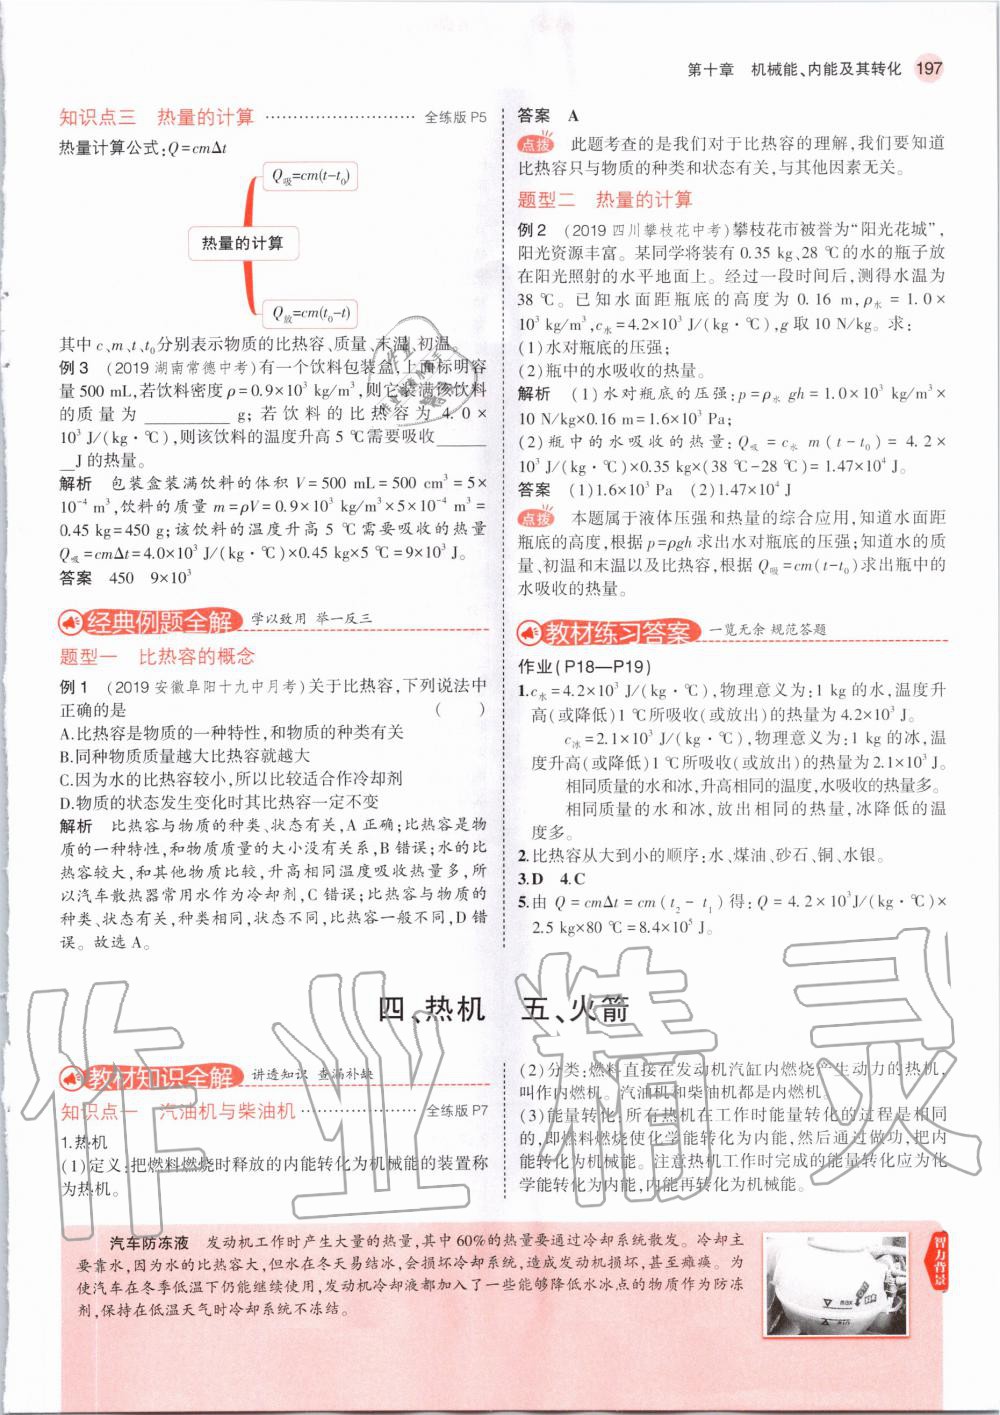 第十章 机械能、内能及其转化 197
知识点三 热量的计算 ………………………… 全练版 P5
热量计算公式:Q=cmΔt
Q吸=cm(t-t₀)
热量的计算
Q放=cm(t₀-t)
其中 c、m、t、t₀分别表示物质的比热容、质量、末温、初温。
例 3 (2019 湖南常德中考)有一个饮料包装盒,上面标明容
量 500 mL,若饮料密度 ρ=0.9×10³ kg/m³,则它装满该饮料
的质量为 ________ g;若饮料的比热容为 4.0×
10³ J/(kg·℃),则该饮料的温度升高 5 ℃需要吸收_____
_J 的热量。
解析 包装盒装满饮料的体积 V=500 mL=500 cm³=5×
10⁻⁴ m³,饮料的质量 m=ρV=0.9×10³ kg/m³×5×10⁻⁴ m³=
0.45 kg=450 g;该饮料的温度升高 5 ℃需要吸收的热量
Q吸=cmΔt=4.0×10³ J/(kg·℃)×0.45 kg×5 ℃=9×10³ J。
答案 450 9×10³
经典例题全解 学以致用 举一反三
题型一 比热容的概念
例 1 (2019 安徽阜阳十九中月考)关于比热容,下列说法中
正确的是 ( )
A.比热容是物质的一种特性,和物质的种类有关
B.同种物质质量越大比热容就越大
C.因为水的比热容较小,所以比较适合作冷却剂
D.物质的状态发生变化时其比热容一定不变
解析 比热容与物质的种类、状态有关,A 正确;比热容是物
质的一种特性,和物质质量的大小没有关系,B 错误;水的比
热容较大,和其他物质比较,升高相同温度吸收热量多,所
以汽车散热器常用水作为冷却剂,C 错误;比热容与物质的
种类、状态有关,种类相同,状态不同,比热容一般不同,D 错
误。故选 A。
答案 A
点拨 此题考查的是我们对于比热容的理解,我们要知道
比热容只与物质的种类和状态有关,与其他因素无关。
题型二 热量的计算
例 2 (2019 四川攀枝花中考)攀枝花市被誉为“阳光花城”,
阳光资源丰富。某同学将装有 0.35 kg、28 ℃的水的瓶子放
在阳光照射的水平地面上。经过一段时间后,测得水温为
38 ℃。已知水面距瓶底的高度为 0.16 m,ρ水=1.0×
10³ kg/m³,c水=4.2×10³ J/(kg·℃),g 取 10 N/kg。求:
(1)水对瓶底的压强;
(2)瓶中的水吸收的热量。
解析 (1)水对瓶底的压强:p=ρ水 gh=1.0×10³ kg/m³×
10 N/kg×0.16 m=1.6×10³ Pa;
(2)瓶中的水吸收的热量:Q吸=c水 m(t-t₀)=4.2×
10³ J/(kg·℃)×0.35 kg×(38 ℃-28 ℃)=1.47×10⁴ J。
答案 (1)1.6×10³ Pa (2)1.47×10⁴ J
点拨 本题属于液体压强和热量的综合应用,知道水面距
瓶底的高度,根据 p=ρgh 求出水对瓶底的压强;知道水的质
量、初温和末温以及比热容,根据 Q吸=cm(t-t₀)求出瓶中的
水吸收的热量。
教材练习答案 一览无余 规范答题
作业(P18—P19)
1.c水=4.2×10³ J/(kg·℃),物理意义为:1 kg 的水,温度升
高(或降低)1 ℃所吸收(或放出)的热量为 4.2×10³ J。
c冰=2.1×10³ J/(kg·℃),物理意义为:1 kg 的冰,温
度升高(或降低)1 ℃所吸收(或放出)的热量为 2.1×10³ J。
相同质量的水和冰,升高相同的温度,水吸收的热量多。
相同质量的水和冰,放出相同的热量,冰降低的温
度多。
2.比热容从大到小的顺序:水、煤油、砂石、铜、水银。
3.D 4.C
5.由 Q=cmΔt=cm(t₂-t₁)得:Q=4.2×10³J/(kg·℃)×
2.5 kg×80 ℃=8.4×10⁵ J。
四、热机 五、火箭
教材知识全解 讲透知识 查漏补缺
知识点一 汽油机与柴油机 ………………… 全练版 P7
1.热机
(1)定义:把燃料燃烧时释放的内能转化为机械能的装置称
为热机。
(2)分类:燃料直接在发动机汽缸内燃烧产生动力的热机,
叫作内燃机。汽油机和柴油机都是内燃机。
(3)能量转化:所有热机在工作时能量转化的过程是相同
的,即燃料燃烧使化学能转化为内能,然后通过做功,把内
能转化为机械能。注意热机工作时完成的能量转化应为化
学能转化为内能,内能再转化为机械能。
汽车防冻液 发动机工作时产生大量的热量,其中 60%的热量要通过冷却系统散发。冷却主
要靠水,因为水的比热容大,但水在冬天易结冰,会损坏冷却系统,造成发动机损坏,甚至瘫痪。为
使汽车在冬季低温下仍能继续使用,发动机冷却液都加入了一些能够降低水冰点的物质作为防冻
剂,保持在低温天气时冷却系统不冻结。
max
min
智力背景
作业精灵